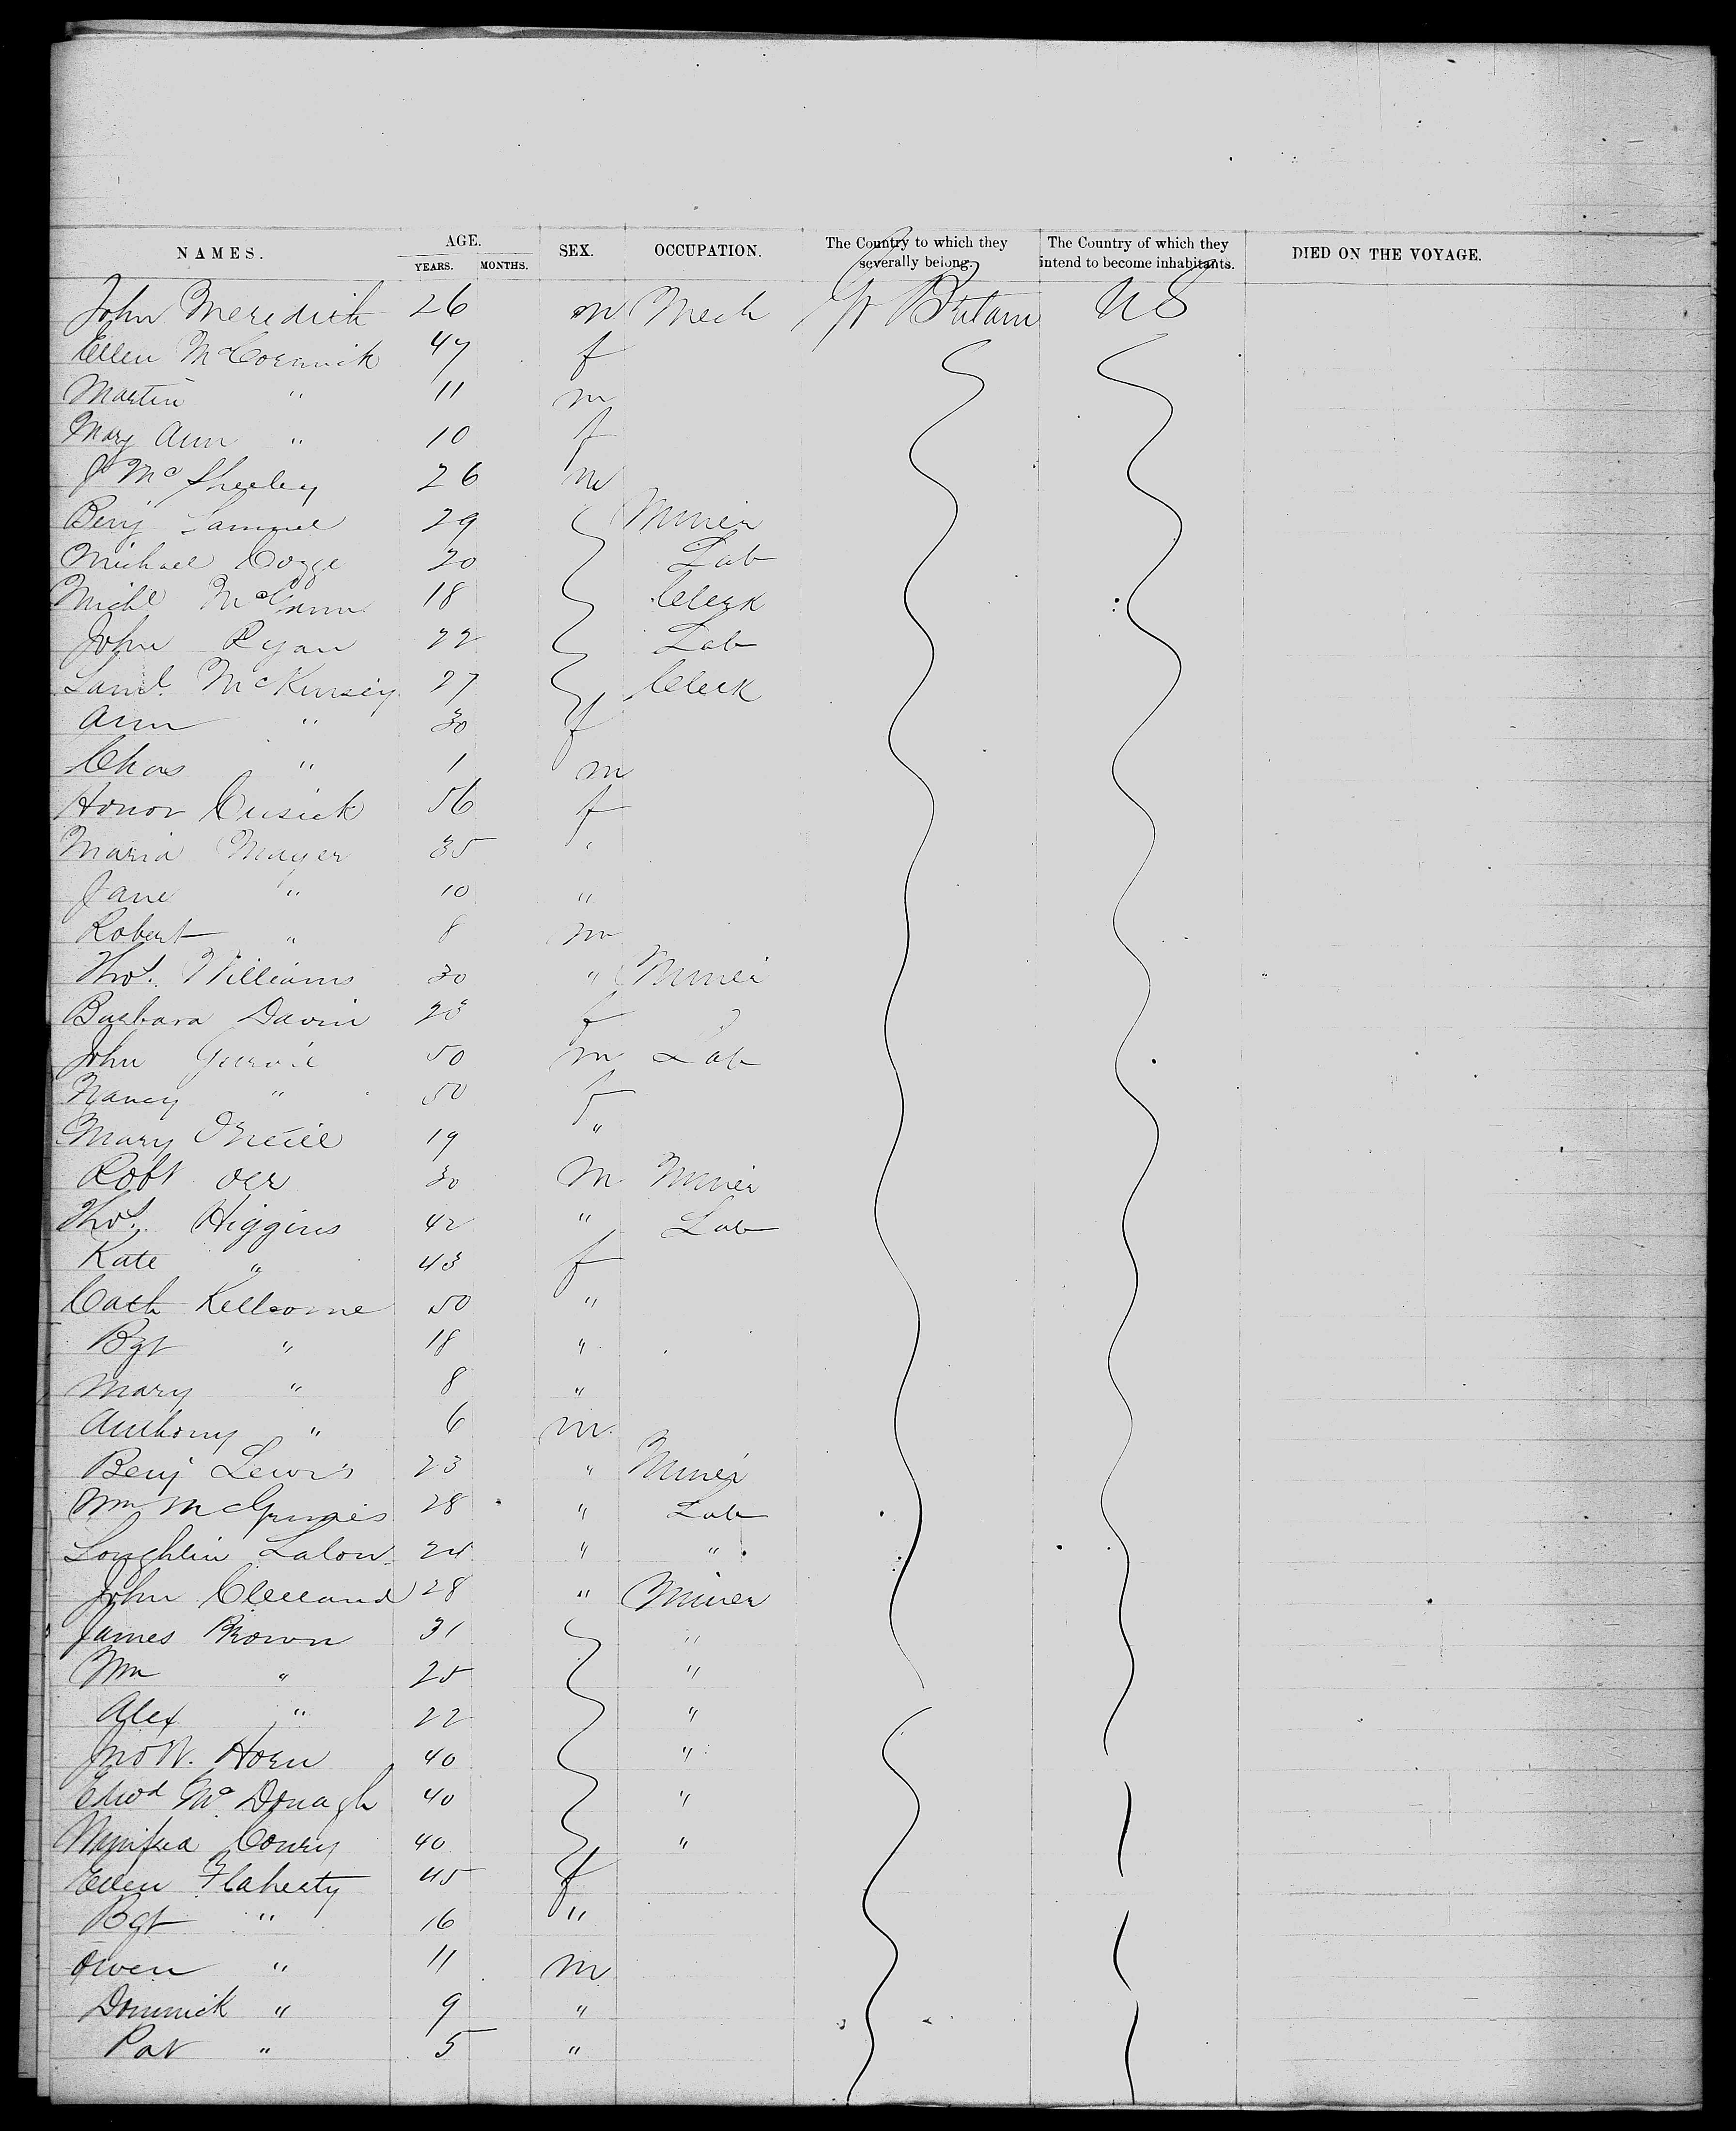 NAMES. AGE. YEARS. MONTHS. SEX. OCCUPATION. The Country to which they severally belong. The Country of which they intend to become inhabitants. DIED ON THE VOYAGE.
John Meredith 26 m Mech Gt Britain US
Ellen McCormick 47 f
Martin " 11 m
Mary Ann " 10 f
J McSheeley 26 m
Benj Samuel 29 Miner
Michael 20 Lab
Michl McCann 18 Clerk
John Ryan 22 Lab
Saml. McKinsey 27 Clerk
Ann " 30 f
Chas " 1 m
Honor Cusick 56 f
Maria Mayer 35 "
Jane " 10 "
Robert " 8 m
Thos. Williams 30 " Miner
Barbara Davin f
John 50 m Lab
Nancy " 50 f
Mary ONeill 19 "
Robt Orr 30 m Miner
Thos. Higgins 42 " Lab
Kate " 43 f
Cath 50 "
Bgt " 18 "
Mary " 8 "
Anthony " 6 m
Benj Lewis 23 " Miner
Wm McGinnies 28 " Lab
Loughlin Lalow 24 " "
John Clelland 28 " Miner
James Brown 31 "
Wm " 25 "
Alex " 22 "
Jno W. Horn 40 "
Edwd McDonagh 40 "
Conry 40 "
Ellen Flaherty 45 f
Bgt " 16 "
Owen " 11 m
Dominick " 9 "
Pat " 5 "